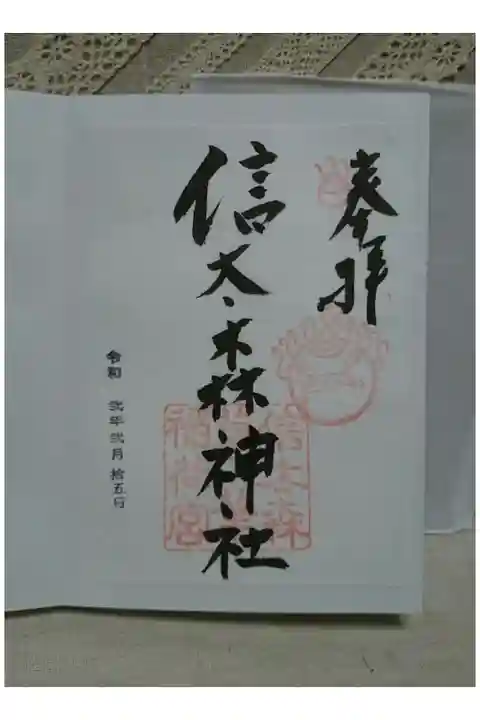 奉拝
信太森神社
令和 弐年弐月拾五日